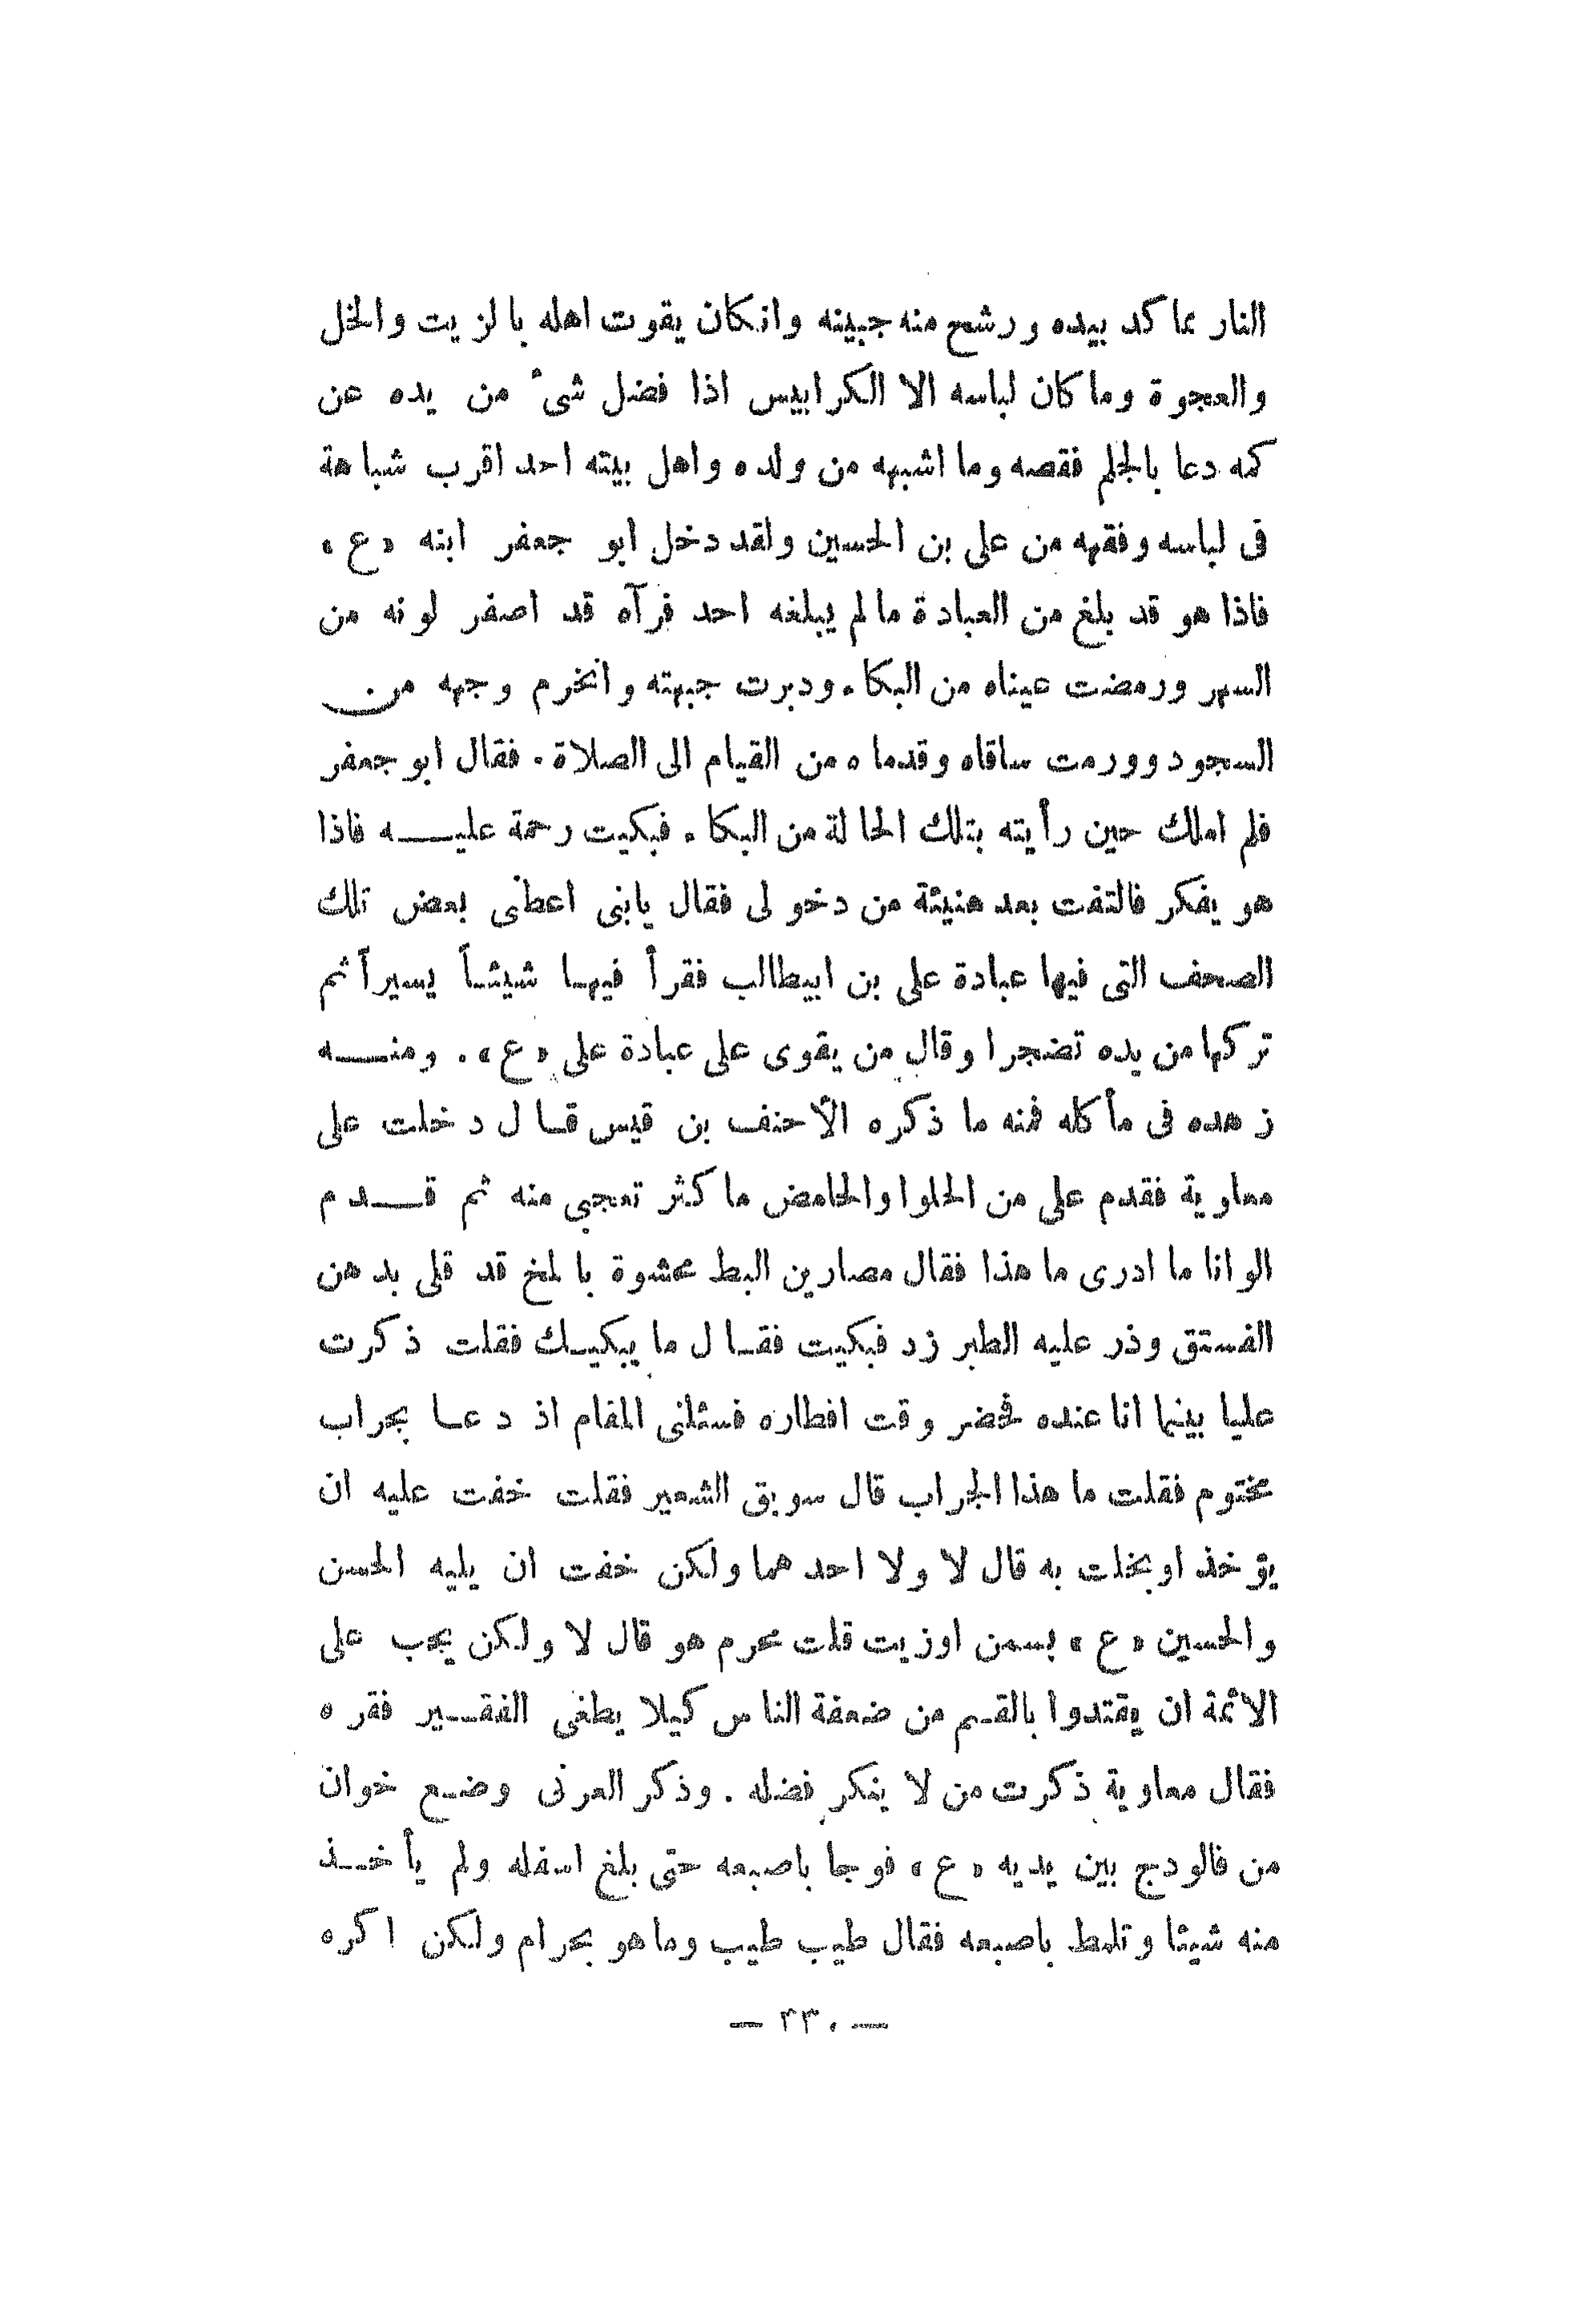 النار مما كد بيده ورشح منه جبينه وانكان يقوت اهله بالزيت والخل
والعجوة وما كان لباسه الا الكرابيس اذا فضل شيء من يده عن
كمه دعا بالجلم فقصه وما اشبهه من ولده واهل بيته احد اقرب شباهة
في لباسه وفقهه من علي بن الحسين ولقد دخل ابو جعفر ابنه «ع»
فاذا هو قد بلغ من العبادة ما لم يبلغه احد فرآه قد اصفر لونه من
السهر ورمضت عيناه من البكاء ودبرت جبهته وانخرم وجهه من
السجود وورمت ساقاه وقدماه من القيام الى الصلاة . فقال ابو جعفر
فلم املك حين رأيته بتلك الحالة من البكاء فبكيت رحمة عليه فاذا
هو يفكر فالتفت بعد هنيئة من دخولي فقال يابني اعطني بعض تلك
الصحف التي فيها عبادة علي بن ابيطالب فقرأ فيها شيئاً يسيراً ثم
تركها من يده تضجرا وقال من يقوى على عبادة علي «ع» . ومنه
زهده في مأكله فمنه ما ذكره الأحنف بن قيس قال دخلت على
معاوية فقدم علي من الحلوا والحامض ما كثر تعجبي منه ثم قدم
الوانا ما ادري ما هذا فقال مصارين البط محشوة بالمخ قد قلي بدهن
الفستق وذر عليه الطبرزد فبكيت فقال ما يبكيك فقلت ذكرت
عليا بينما انا عنده فحضر وقت افطاره فسئلني المقام اذ دعا بجراب
مختوم فقلت ما هذا الجراب قال سويق الشعير فقلت خفت عليه ان
يؤخذ او بخلت به قال لا ولا احدهما ولكن خفت ان يليه الحسن
والحسين «ع» بسمن او زيت قلت محرم هو قال لا ولكن يجب على
الائمة ان يقتدوا بالقسم من ضعفة الناس كيلا يطغى الفقير فقره
فقال معاوية ذكرت من لا ينكر فضله . وذكر العرني وضع خوان
من فالودج بين يديه «ع» فوجا باصبعه حتى بلغ اسفله ولم يأخذ
منه شيئا وتلمظ باصبعه فقال طيب طيب وما هو بحرام ولكن اكره
— ٢٣٠ —